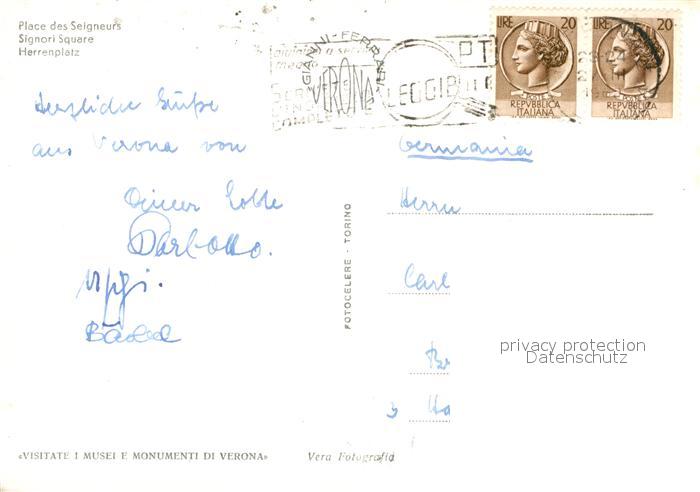 Place des Seigneurs
Signori Square
Herrenplatz
GIANNI-FERRARI
VERONA
LEGGIB
COMPLE
LIRE 20
REPVBBLICA
ITALIANA
LIRE 20
REPVBBLICA
ITALIANA
Herzliche Grüße
aus Verona von
Deiner Lotte
Bärbel
Germania
Herrn
Carl
privacy protection
Datenschutz
FOTOCELERE - TORINO
«VISITATE I MUSEI E MONUMENTI DI VERONA»
Vera Fotografia